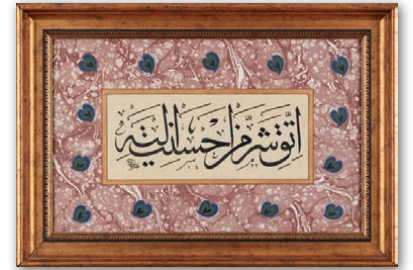 اِتَّقِ شَرَّ مَنْ اَحْسَنْتَ اِلَيْهِ